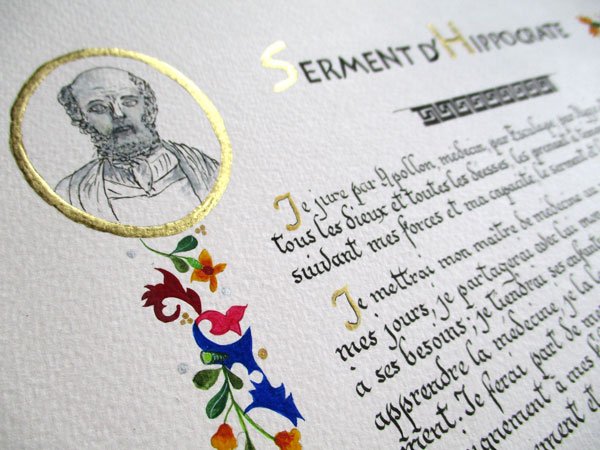 SERMENT D'HIPPOCRATE
Je jure par Apollon, médecin, par Esculape, par
tous les dieux et toutes les déesses, les prenant à
suivant mes forces et ma capacité, le serment et
Je mettrai mon maître de médecine au
mes jours, je partagerai avec lui mon
à ses besoins; je tiendrai ses enfants
apprendre la médecine, je la
ment. Je ferai part de
ignement à mes
ment et